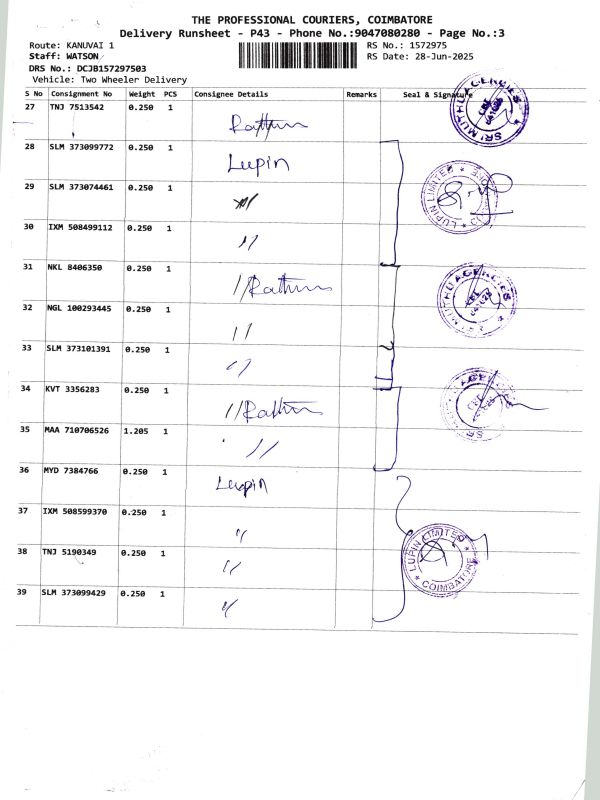 THE PROFESSIONAL COURIERS, COIMBATORE
Delivery Runsheet - P43 - Phone No.:9047080280 - Page No.:3
Route: KANUVAI 1 RS No.: 1572975
Staff: WATSON RS Date: 28-Jun-2025
DRS No.: DCJB157297503
Vehicle: Two Wheeler Delivery
S No Consignment No Weight PCS Consignee Details Remarks Seal & Signature
27 TNJ 7513542 0.250 1
SRI MUTHU AGENCIES
28 SLM 373099772 0.250 1 Lupin
29 SLM 373074461 0.250 1 〃
LUPIN LIMITED * COIMBATORE *
30 IXM 508499112 0.250 1 〃
31 NKL 8406350 0.250 1
SRI MUTHU AGENCIES
32 NGL 100293445 0.250 1 〃
33 SLM 373101391 0.250 1 〃
34 KVT 3356283 0.250 1
35 MAA 710706526 1.205 1 〃
36 MYD 7384766 0.250 1 Lupin
37 IXM 508599370 0.250 1 〃
38 TNJ 5190349 0.250 1 〃
LUPIN LIMITED * COIMBATORE *
39 SLM 373099429 0.250 1 〃